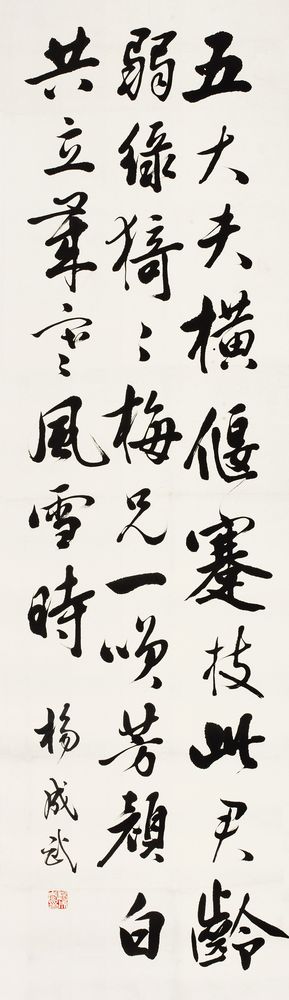 五大夫橫偃蹇枝此君齡
弱綠猗〻梅兄一咲芳顏白
共立歲寒風雪時
楊成武